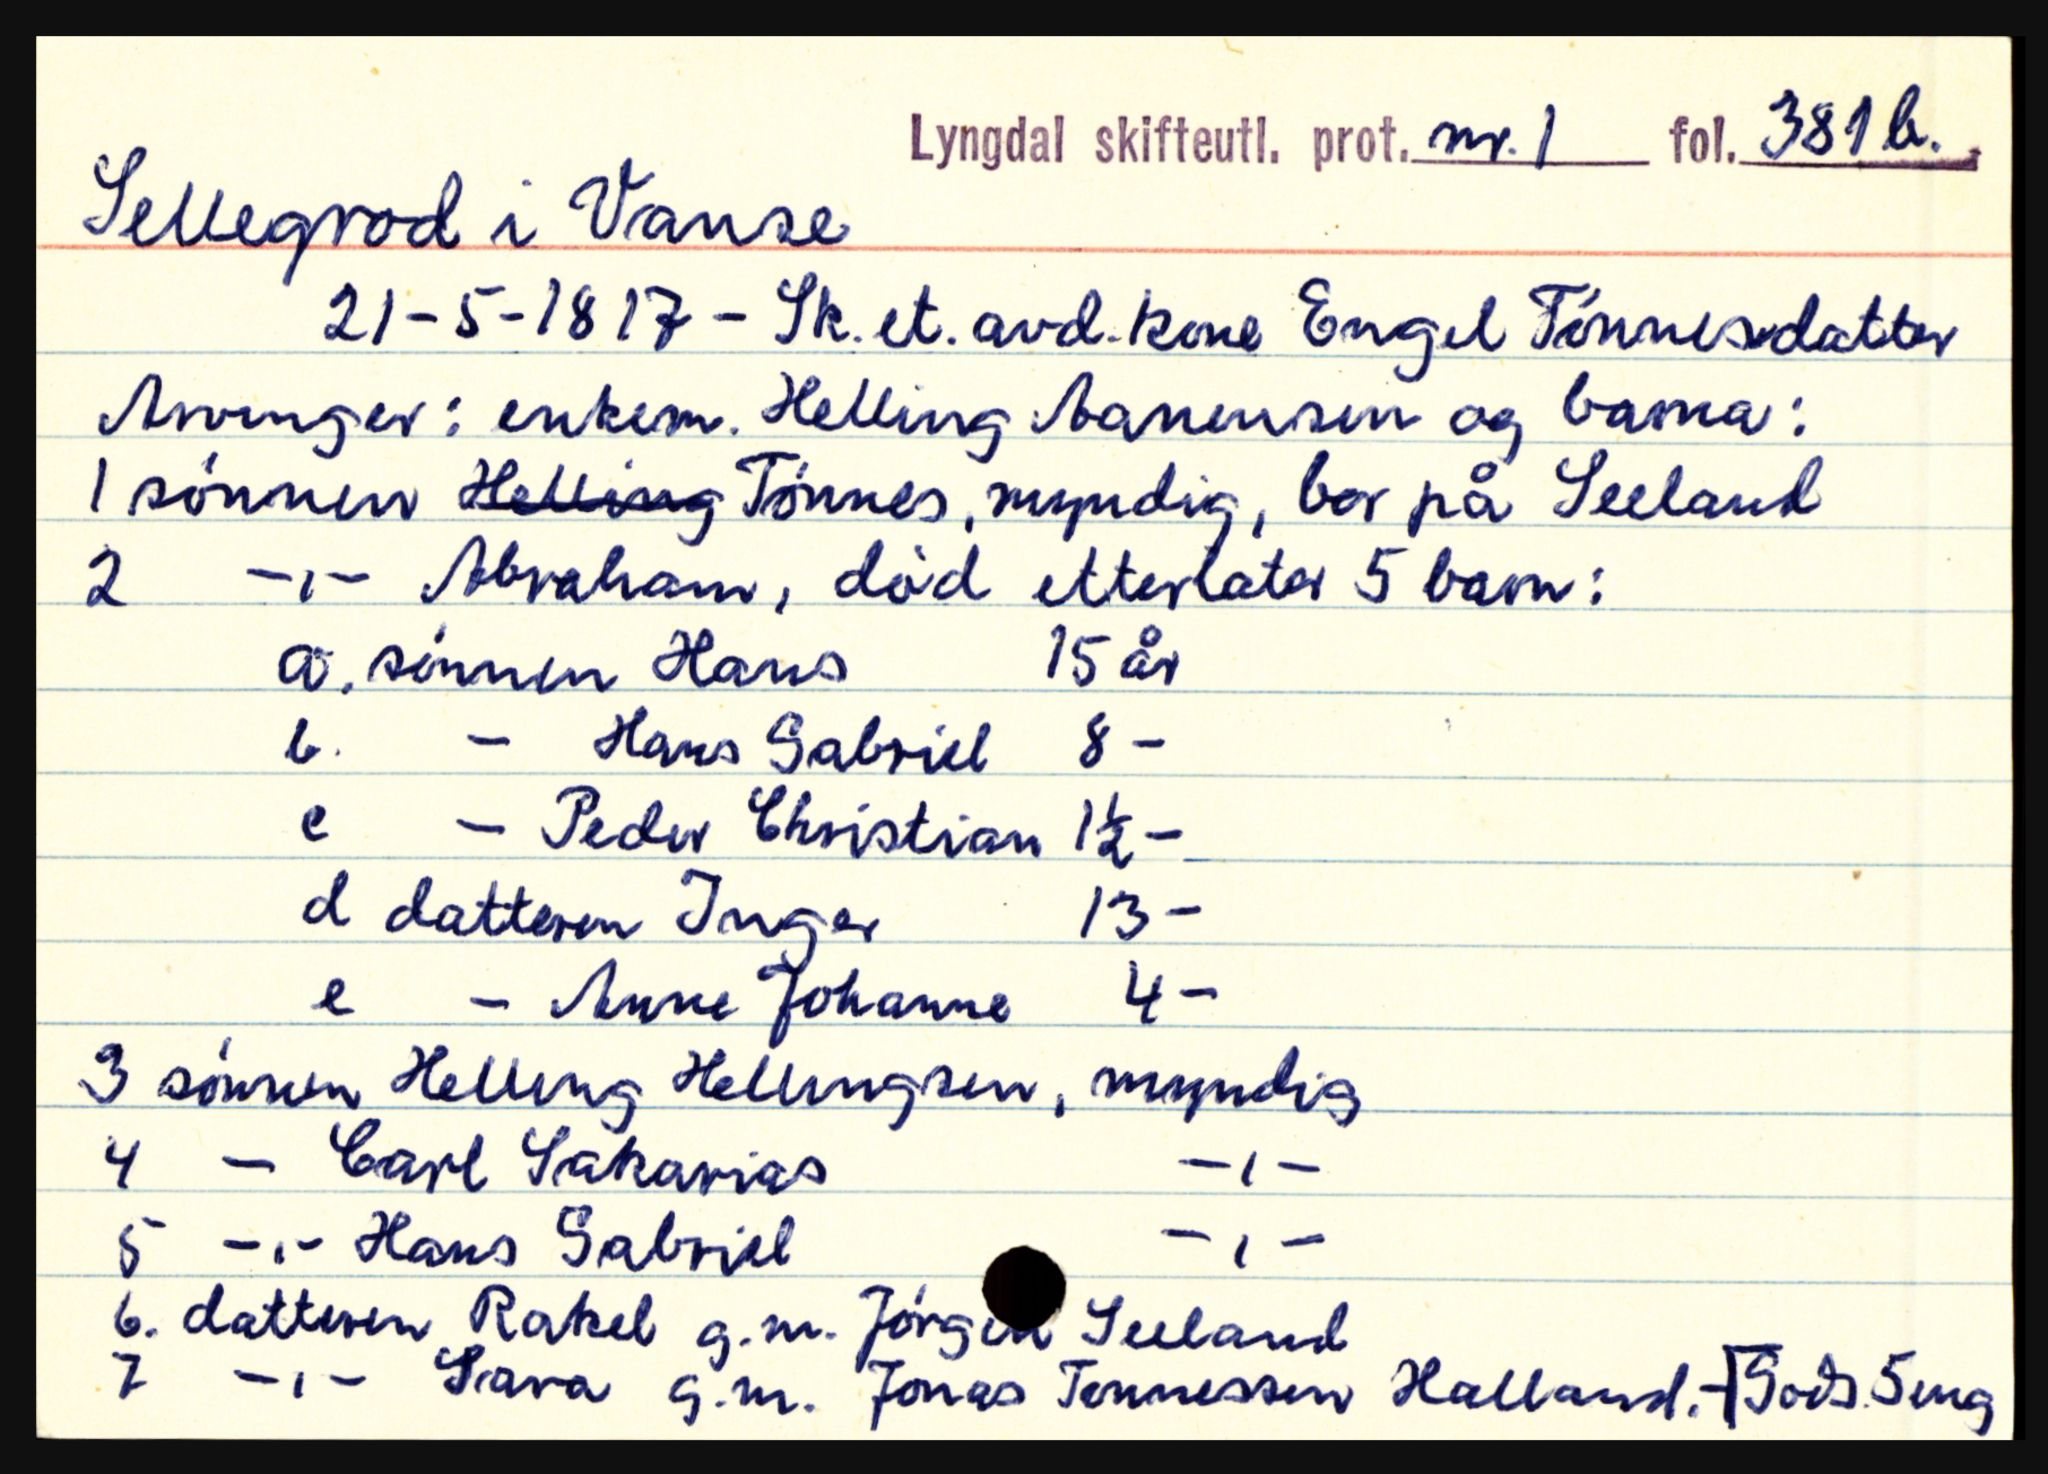 Lyngdal skifteutl. prot. nr. 1 fol. 381 b.
Sellegrod i Vanse
21-5-1817 - Sk. et. avd. kone Engel Tónnesdatter
Arvinger: enkem. Helling Aanensen og barna:
1 sónnen ~~Helling~~ Tónnes, myndig, bor på Seeland
2 -,- Abraham, död etterlater 5 barn:
a. sónnen Hans 15 år
b. - Hans Gabriel 8 -
c - Peder Christian 1½ -
d datteren Inger 13 -
e - Anne Johanne 4 -
3 sónnen Helling Hellingsen, myndig
4 - Carl Sakarias -,-
5 -,- Hans Gabriel -,-
6. datteren Rakel g.m. Jórgen Seeland
7 -,- Sara g.m. Jonas Tonnessen Halland. - Gods. 5 eng